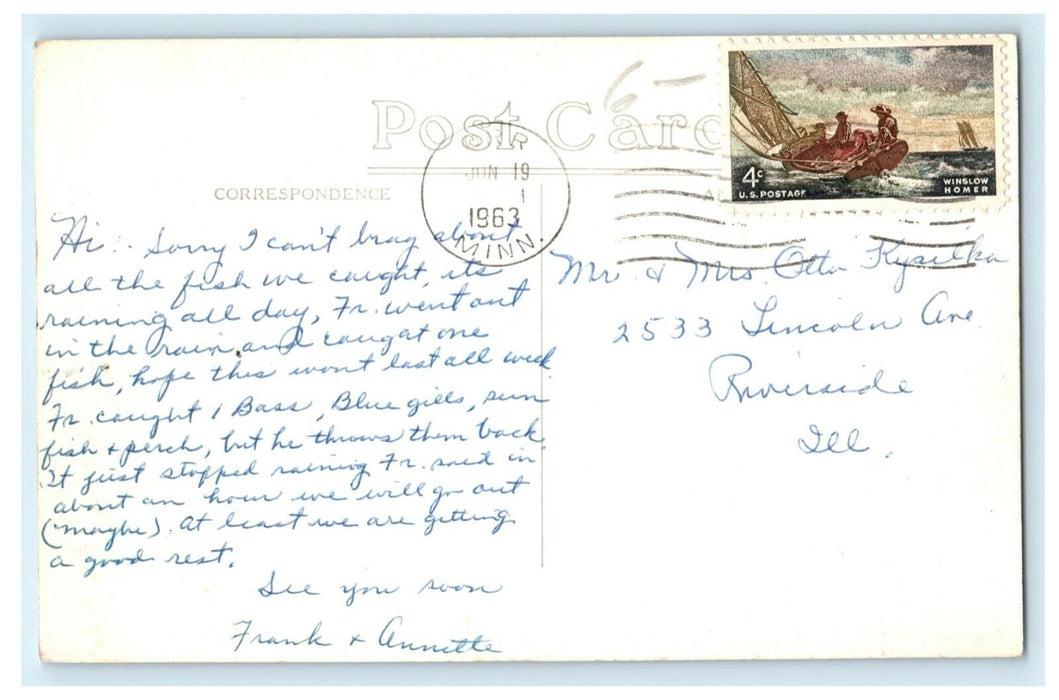 6-
Post Car
CORRESPONDENCE
JUN 19
1
1963
MINN.
4c
U.S. POSTAGE
WINSLOW
HOMER
Hi. Sorry I can't brag about
all the fish we caught, its
raining all day, Fr. went out
in the rain and caught one
fish, hope this wont last all week
Fr. caught 1 Bass, Blue gills, sun
fish + perch, but he throws them back.
It just stopped raining Fr. said in
about an hour we will go out
(maybe). At least we are getting
a good rest.
See you soon
Frank + Annette
Mr & Mrs Otto Kysilka
2533 Lincoln Ave
Riverside
Ill.